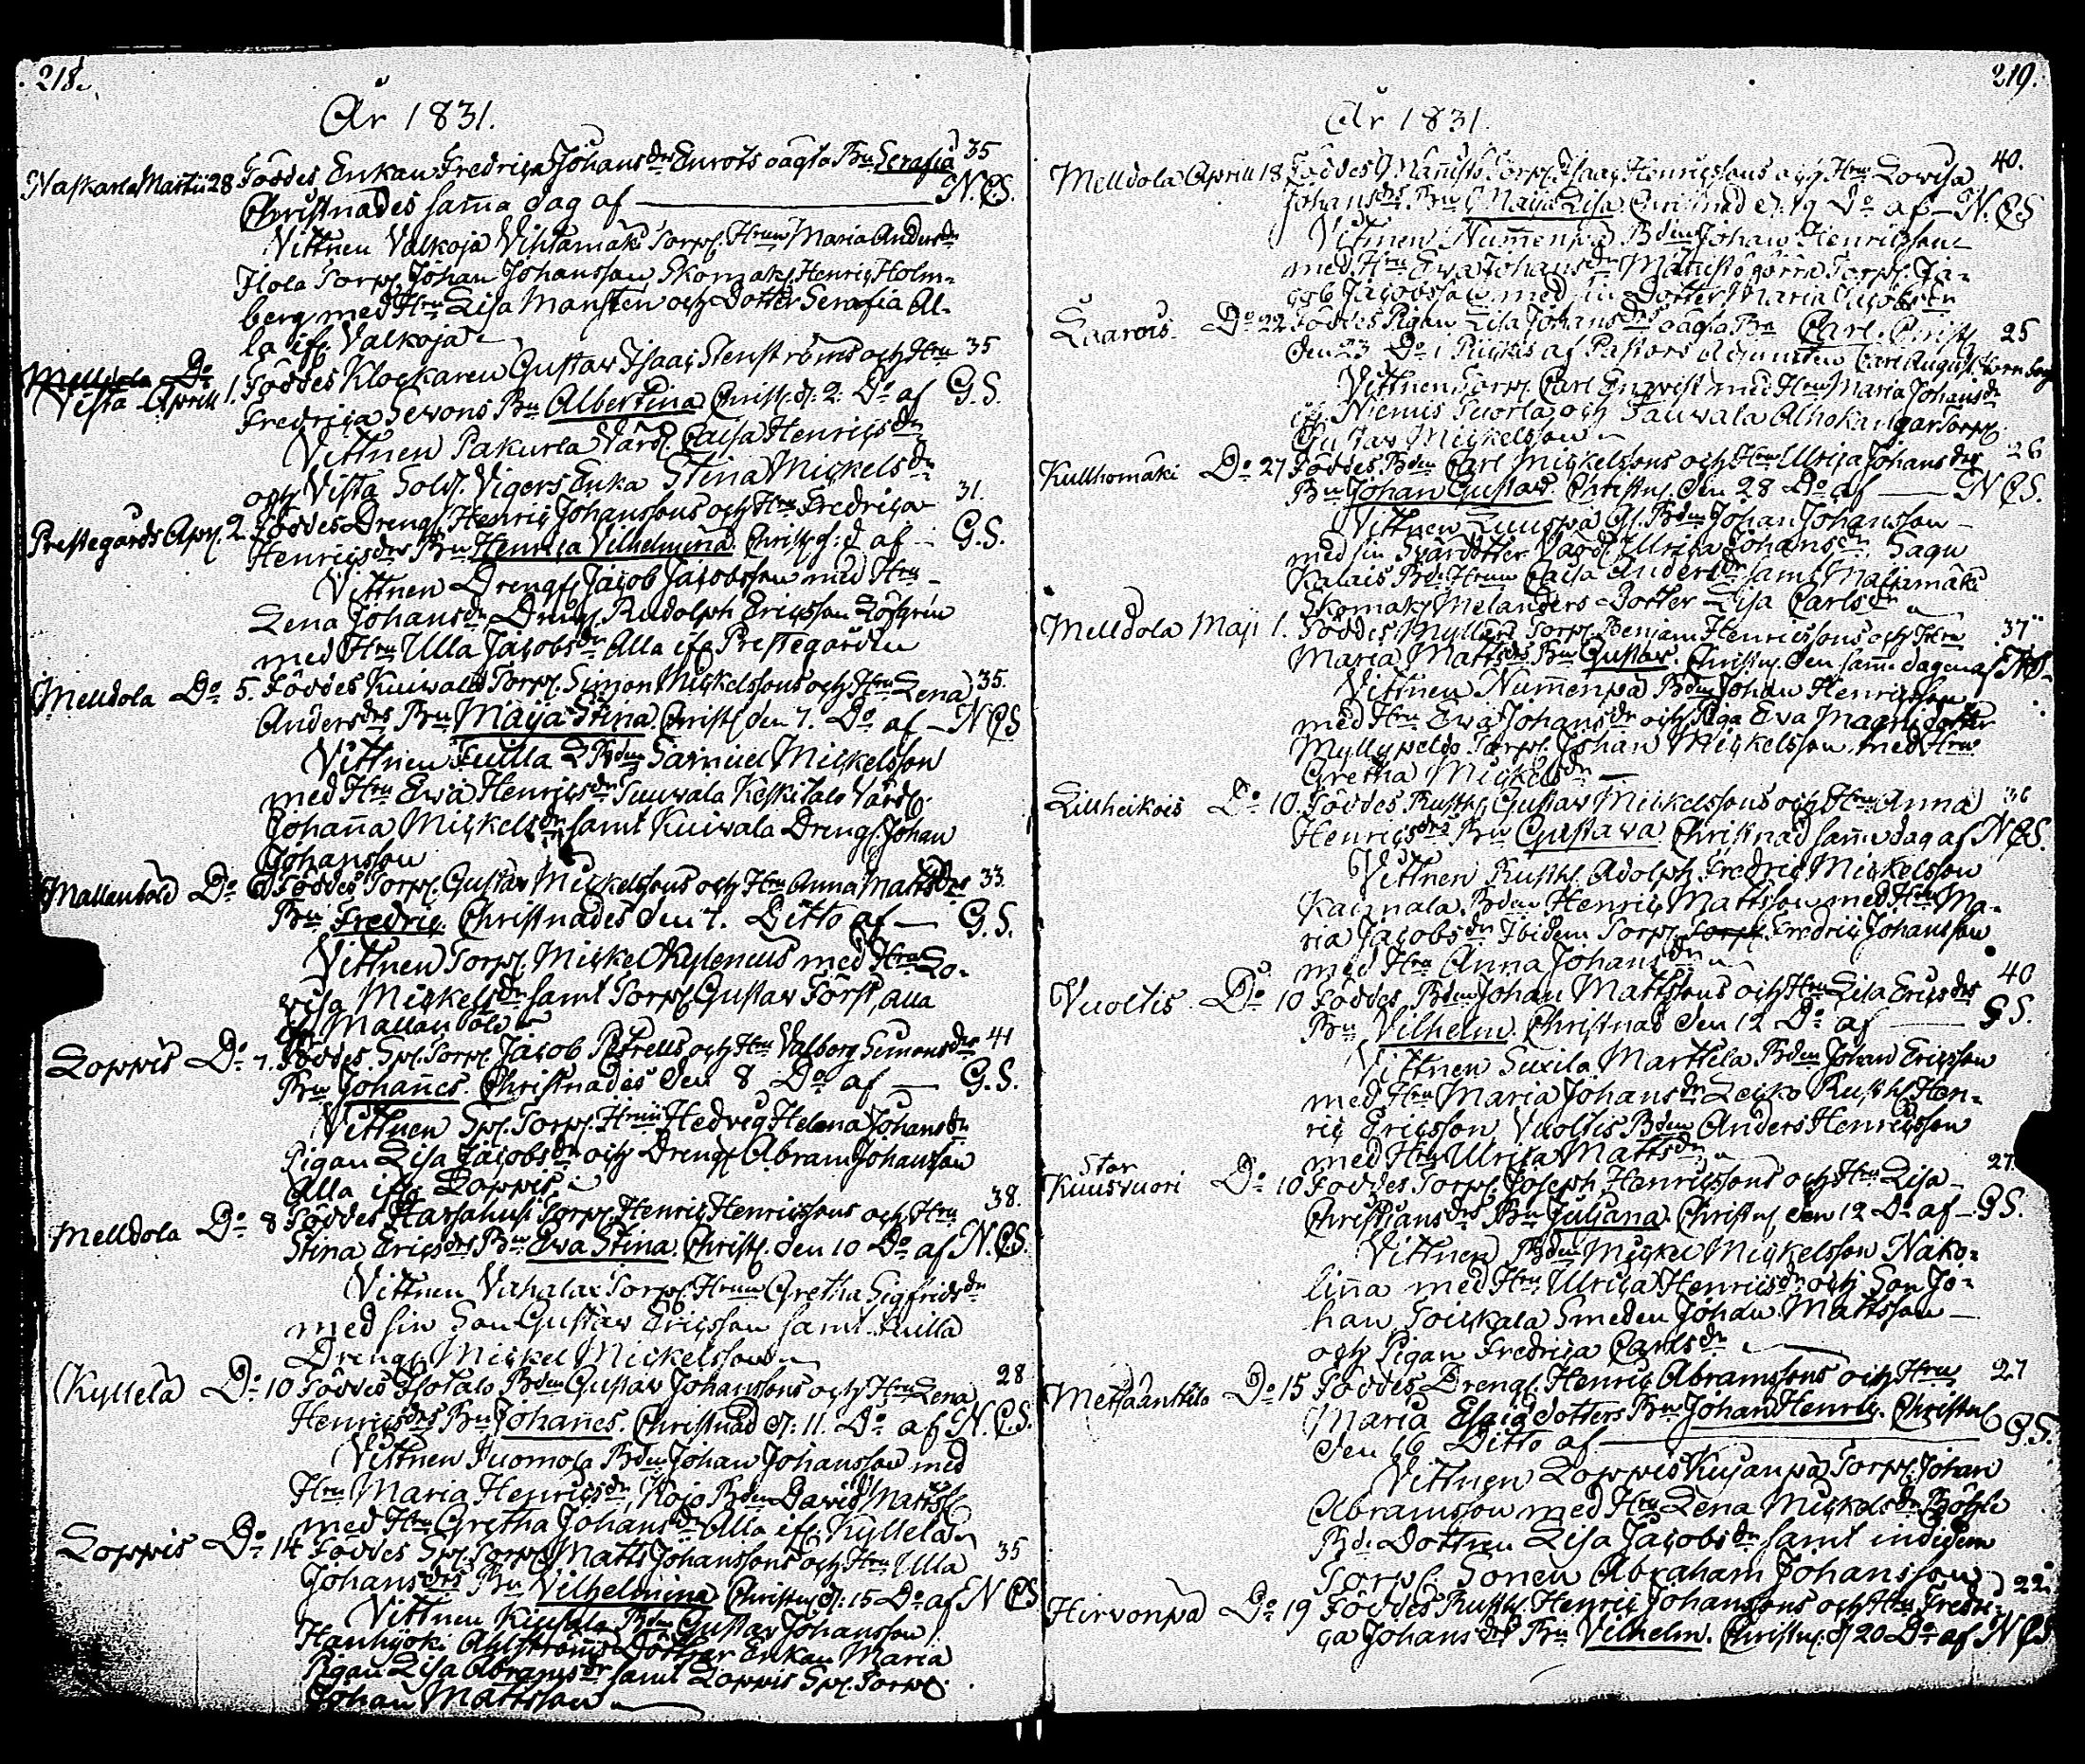 218.
År 1831.
Naskarla Martii 28 Föddes Enkan Fredrica Johansdrs Enrots oägta Bn Serafia 35
Christnades samma dag af — N.C.S.
Vittnen Valkoja Vihtamäki Torp. Hrun Maria Andersdr
Torp. Johan Johansson, Skomak. Henric Holm-
berg med Hru Lisa Mansten och Dotter Serafia Al-
la ifr. Valkoja
Melldola Do
Vista Aprill 1. Föddes Klockaren Gustav Isaac Stenströms och Hru 35
Fredrica Sevons Bn Albertina Christ. d. 2. Do af G.S.
Vittnen Pakurla Värd. Caisa Henricsdr
och Vista Sold. Vigers Enka Stina Mickelsdr
Prestegårds Apr. 2. Föddes Dreng. Henric Johanssons och Hru Fredrica 31.
Henricsdrs Bn Henrica Vilhelmina. Christ. af G.S.
Vittnen Drengen Jacob Jacobsson med Hru
Lena Johansdr Dreng. Rudolph Ericsson Löfgren
med Hru Ulla Jacobsdr Alla ifr Prestegården
Melldola Do 5. Föddes Kuivala Torp. Simon Mickelssons och Hru Lena 35.
Andersdrs Bn Maija Stina. Christ. den 7. Do af N.C.S
Vittnen Bdn Samuel Mickelsson
med Hru Ewa Henricsdr Tuuvala Keskitalo Värd.
Johanna Mickelsdr samt Kuivala Dreng. Johan
Johansson
Mallanböle Do 6 Föddes Torp. Gustav Mickelssons och Hru Anna Mattsdrs 33.
Bn Fredric. Christnades den 7. Ditto af G.S.
Vittnen Torp. Mickel Kyleneus med Hru Lo-
visa Mickelsdr samt Torp. Gustav Först, alla
ifr Mallanböle
Loppis Do 7. Föddes Spl. Torp. Jacob Petrells och Hru Valborg Simonsdrs 41
Bn Johannes. Christnades den 8 Do af — G.S.
Vittnen Spl. Torp. Hrun Hedvig Helena Johansdr
Pigan Lisa Jacobsdr och Dreng. Abram Johansson
Alla ifr. Loppis
Melldola Do 8 Föddes Torp. Henric Henricssons och Hru 38.
Stina Ericsdrs Bn Ewa Stina. Christ. den 10 Do af N.C.S.
Vittnen Torp. Hrun Gretha Sigfridsdr
med sin Son Gustav Ericsson samt
Dreng. Mickel Mickelsson
Kyllelä Do 10 Föddes Isotalo Bdn Gustav Johanssons och Hru Lena 28
Henricsdrs Bn Johannes. Christnad d. 11. Do af N.C.S.
Vittnen Tuomola Bdn Johan Johansson med
Hru Maria Henricsdr, Kojo Bdn David Matts.
med Hru Gretha Johansdr Alla ifr. Kyllelä
Loppis Do 14 Föddes Spl. Torp. Matts Johanssons och Hru Ulla 35
Johansdrs Bn Vilhelmina Christn. d. 15 Do af N C S
Vittnen Bdn Gustav Johansson
Hanhijoki Ahlströms Dotter Enkan Maria
Pigan Lisa Abramsdr samt Loppis Spl. Torp.
Johan Mattsson
219.
År 1831.
Melldola Aprill 18 Föddes Torp. Isaac Henricssons och Hru Lovisa 40.
Johansdrs Bn Maija Lisa Christnad d. 19 Do af N.C.S
Vittnen Nummenpä Bdn Johan Henricsson
med Hru Ewa Johansdr Torp. Ja-
cob Jacobsson med sin Dotter Maria Jacobsdr
Laarois Do 22 Föddes Pigan Lisa Johansdrs oägta Bn Carl. Christ. 25
den 23 Do i Piickis af Pastors Adjuncten Carl August
Vittnen Torp. Carl Enqvist med Hru Maria Johansdr
ifr. Niemis Tuorla och Tauvala Alhokangar Torp.
Gustav Mickelsson
Kullhomäki Do 27 Föddes Bdn Carl Mickelssons och Hru Ulrica Johansdrs 26
Bn Johan Gustav Christn. den 28 Do af — N C S.
Vittnen Bdn Johan Johansson
med sin Värd. Ulrica Johansdr, Sagu
Kalais Bd. Hrun Caisa Andersdr samt Maljamäki
Skomak. Melanders Dotter Lisa Carlsdr
Melldola Maji 1. Föddes Torp. Benjam Henricssons och Hru 37
Maria Mattsdrs Bn Gustav. Christn. den samma dagen af
Vittnen Nummenpä Bdn Johan Henricsson
med Hru Ewa Johansdr och Piga Eva Magnidotter
Myllypeldo Torp. Johan Mickelsson med Hru
Gretha Mickelsdr
Liuheikois Do 10. Föddes Rusth. Gustav Mickelssons och Hru Anna 36
Henricsdrs Bn Gustava Christnad samma dag af N C S.
Vittnen Rusth. Adolph Fredric Mickelsson
Bdn Henric Mattsson med Hru Ma-
ria Jacobsdr Ibidem Torp. Torp. Fredric Johansson
med Hru Anna Johansdr
Vuoltis Do 10 Föddes Bdn Johan Mattssons och Hru Lisa Ericsdrs 40
Bn Vilhelm. Christnad den 12 Do af — G S.
Vittnen Suxila Marttela Bdn Johan Ericsson
med Hru Maria Johansdr Rusth. Hen-
ric Ericsson Vuoltis Bdn Anders Henricsson
med Hru Ulrica Mattsdr
Stor
Kuusvuori Do 10 Föddes Torp. Joseph Henricssons och Hru Lisa 27.
Christiansdrs Bn Juliana. Christn. den 12 Do af G S.
Vittnen Bdn Mickel Mickelsson Nako-
linna med Hru Ulrica Henricsdr och Son Jo-
han Toickala Smeden Johan Mattsson
och Pigan Fredrica Carlsdr
Do 15 Föddes Dreng. Henric Abramssons och Hru 27
Maria dotters Bn Johan Henric. Christn.
den 16 Ditto af — G.S.
Vittnen Loppis Kujanpä Torp. Johan
Abramsson med Hru Lena Mickelsdr Böhle
Bd. Dottren Lisa Jacobsdr samt
Torp. Sonen Abraham Johansson
Hirvonpä Do 19 Föddes Rusth. Henric Johanssons och Hru Fredri- 22.
ca Johansdrs Bn Vilhelm. Christn. d 20 Do af N C S